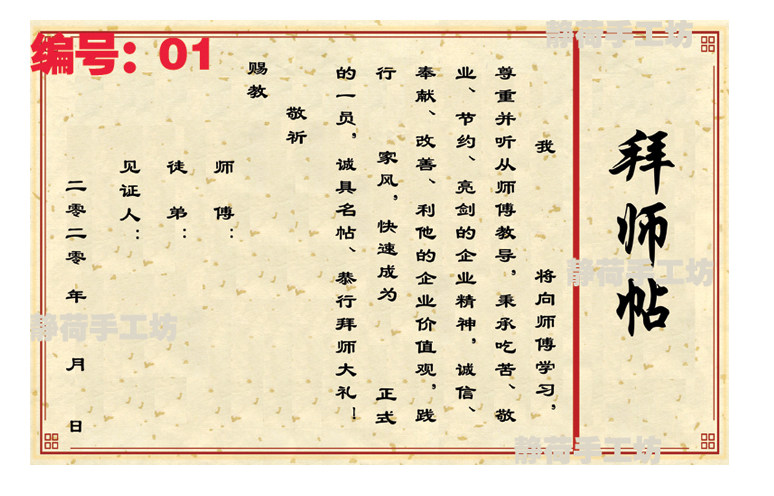 编号：01
拜师帖
我 将向师傅学习，
尊重并听从师傅教导，秉承吃苦、敬
业、节约、亮剑的企业精神，诚信、
奉献、改善、利他的企业价值观，践
行 家风，快速成为 正式
的一员，诚具名帖、恭行拜师大礼！
敬祈
赐教
师傅：
徒弟：
见证人：
二零二零年 月 日
静荷手工坊
静荷手工坊
静荷手工坊
静荷手工坊